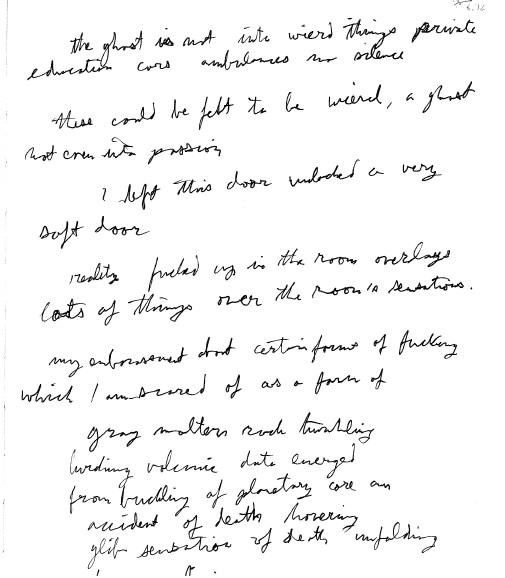 6.12
the ghost is not into wierd things private
education cars ambulances no silence
these could be felt to be wierd, a ghost
not even into passion
I left this door unlocked a very
soft door
reality fucked up in the room overlays
lots of things over the room's sensations.
my embarassment about certain forms of fucking
which I am scared of as a form of
gray matters rock
volcanic data emerged
from buckling of planetary core an
accident of death hovering
glib sensation of death unfolding